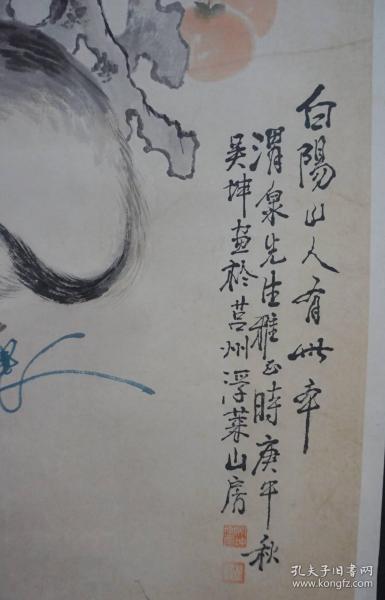 白陽山人有此本
渭泉先生雅正時庚午秋
吴坤畫於莒州浮萊山房
孔夫子旧书网
www.kongfz.com